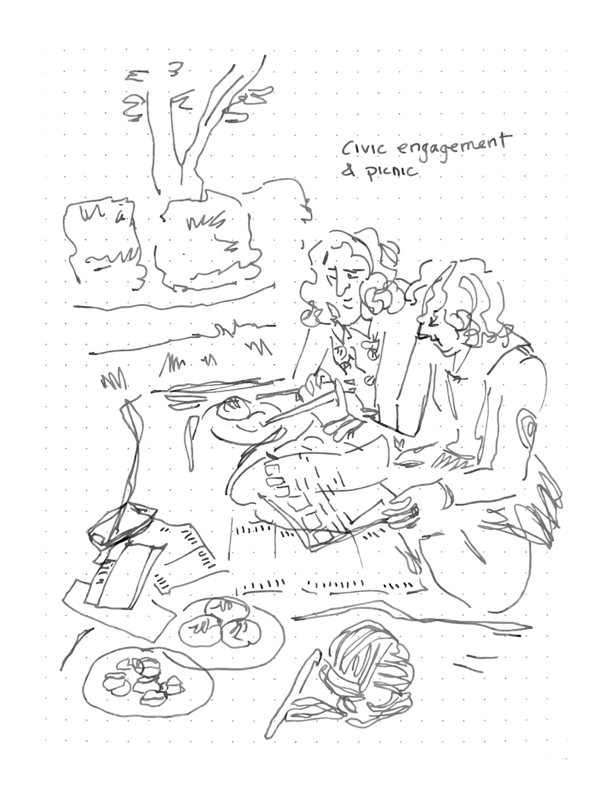 Civic engagement
& picnic